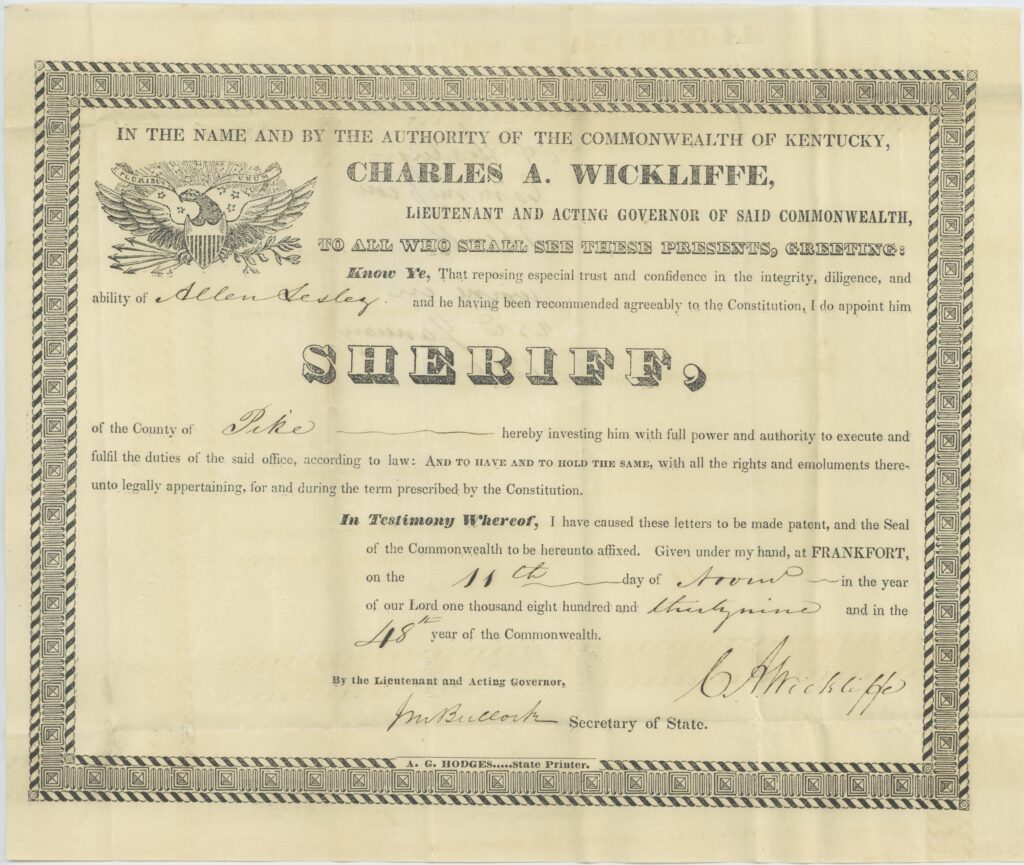 IN THE NAME AND BY THE AUTHORITY OF THE COMMONWEALTH OF KENTUCKY,
E PLURIBUS UNUM
CHARLES A. WICKLIFFE,
LIEUTENANT AND ACTING GOVERNOR OF SAID COMMONWEALTH,
TO ALL WHO SHALL SEE THESE PRESENTS, GREETING:
Know Ye, That reposing especial trust and confidence in the integrity, diligence, and
ability of Allen Lesley. and he having been recommended agreeably to the Constitution, I do appoint him
SHERIFF,
of the County of Pike hereby investing him with full power and authority to execute and
fulfil the duties of the said office, according to law: AND TO HAVE AND TO HOLD THE SAME, with all the rights and emoluments there-
unto legally appertaining, for and during the term prescribed by the Constitution.
In Testimony Whereof, I have caused these letters to be made patent, and the Seal
of the Commonwealth to be hereunto affixed. Given under my hand, at FRANKFORT,
on the 11th day of Novem in the year
of our Lord one thousand eight hundred and thirtynine and in the
48th year of the Commonwealth.
C A Wickliffe
By the Lieutenant and Acting Governor,
JM Bullock Secretary of State.
A. G. HODGES.....State Printer.